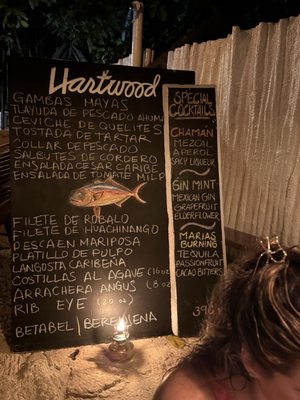 Hartwood
GAMBAS MAYAS
TLAYUDA DE PESCADO AHUMA
CEVICHE DE QUELITES
TOSTADA DE TARTAR
COLLAR DE PESCADO
SALBUTES DE CORDERO
ENSALADA CESAR CARIBE
ENSALADA DE TOMATE MILP
FILETE DE ROBALO
FILETE DE HUACHINANGO
PESCA EN MARIPOSA
PLATILLO DE PULPO
LANGOSTA CARIBEÑA
COSTILLAS AL AGAVE (16oz
ARRACHERA ANGUS (8oz
RIB EYE (20oz)
BETABEL | BERENJENA
SPECIAL
COCKTAILS
CHAMAN
MEZCAL
APEROL
SPICY LIQUEUR
GIN MINT
MEXICAN GIN
GRAPEFRUIT
ELDERFLOWER
MARIAS
BURNING
TEQUILA
PASSIONFRUIT
CACAO BITTERS